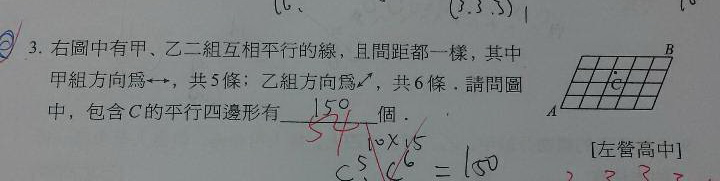 (3.3.3)
3. 右圖中有甲、乙二組互相平行的線，且間距都一樣，其中
甲組方向為↔，共5條；乙組方向為⤢，共6條．請問圖
中，包含C的平行四邊形有 150 個．
54
10×15
C⁵ C⁶ = 150
B
C
A
[左營高中]